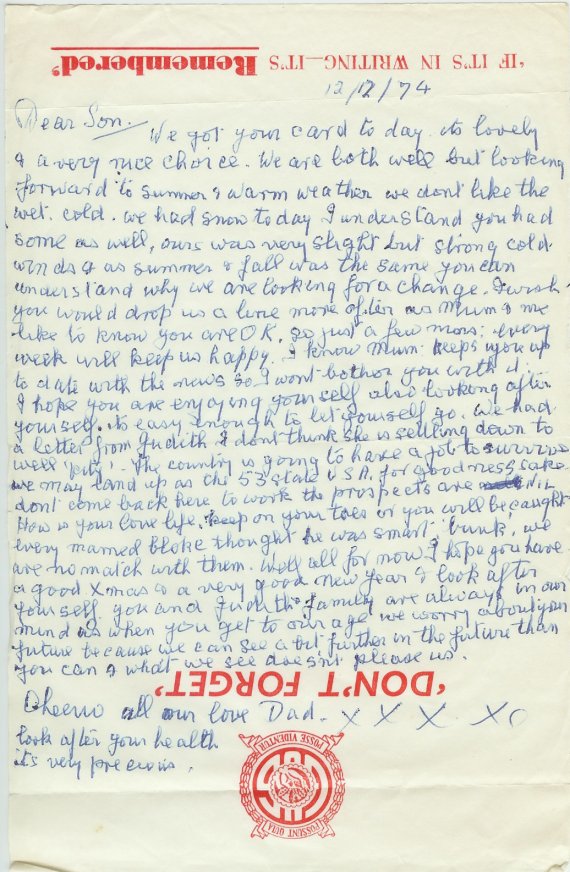 'IF IT'S IN WRITING—IT'S Remembered'
12/12/74
Dear Son. We got your card to day. its lovely
& a very nice choice. We are both well but looking
forward to summer & warm weather we dont like the
wet. cold. we had snow to day I understand you had
some as well, ours was very slight but strong cold
winds & as summer & fall was the same you can
understand why we are looking for a change. I wish
you would drop us a line more often as Mum & me
like to know you are OK, so just a few mins: every
week will keep us happy. I know Mum keeps you up
to date with the news so I wont bother you with it.
I hope you are enjoying yourself also looking after
yourself. its easy enough to let yourself go. We had
a letter from Judith I dont think she is settling down to
well 'pity'. The country is going to have a job to survive
we may land up as the 53 state USA. for goodness sake
dont come back here to work the prospects are nil
How is your love life. keep on your toes or you will be caught
every married bloke thought he was smart 'bunk', we
are no match with them. Well all for now I hope you have
a good Xmas & a very good new year & look after
yourself. you and Judith & family are always in our
mind as when you get to our age we worry about your
future because we can see a bit further in the future than
you can & what we see doesnt please us.
'DON'T FORGET'
Cheerio all our love Dad. X X X X
look after your health
its very precious.
POSSE VIDENTUR
POSSUNT QUIA